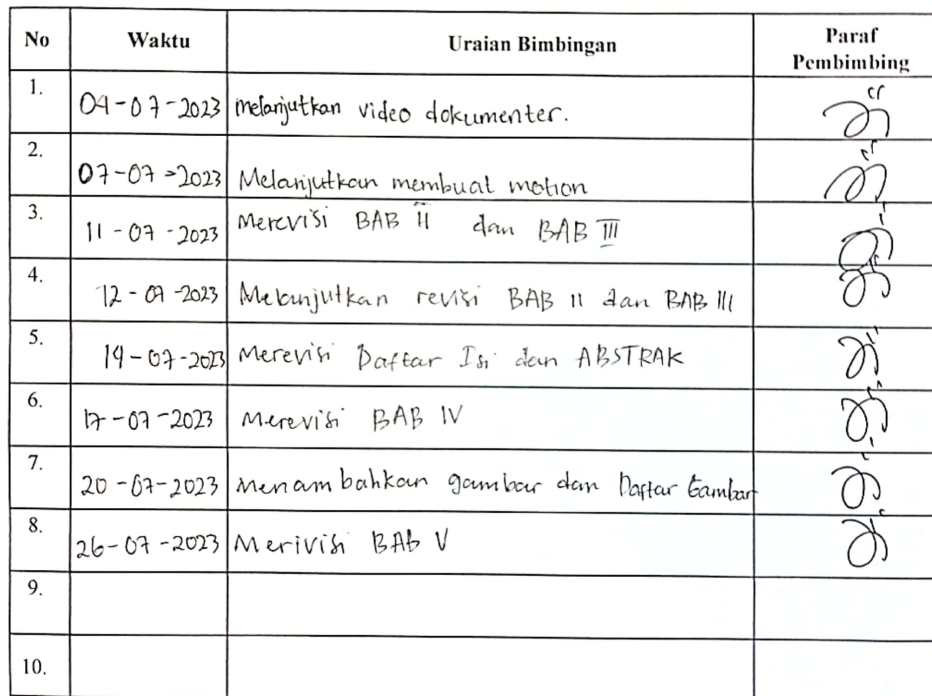 No Waktu Uraian Bimbingan Paraf Pembimbing
1. 04-07-2023 melanjutkan video dokumenter.
2. 07-07-2023 Melanjutkan membuat motion
3. 11-07-2023 Merevisi BAB II dan BAB III
4. 12-07-2023 Melanjutkan revisi BAB II dan BAB III
5. 14-07-2023 Merevisi Daftar Isi dan ABSTRAK
6. 17-07-2023 Merevisi BAB IV
7. 20-07-2023 Menambahkan gambar dan Daftar Gambar
8. 26-07-2023 Merivisi BAB V
9.
10.